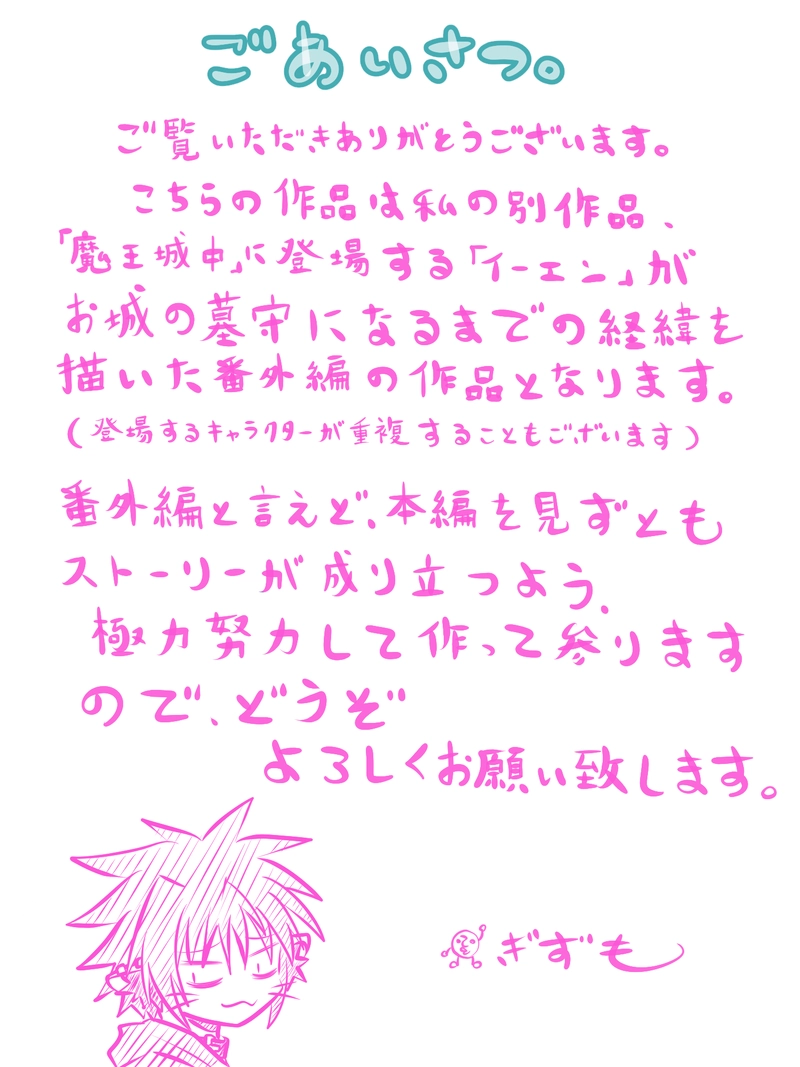 ごあいさつ。
ご覧いただきありがとうございます。
こちらの作品は私の別作品、
「魔王城中」に登場する「イーエン」が
お城の墓守になるまでの経緯を
描いた番外編の作品となります。
(登場するキャラクターが重複することもございます)
番外編と言えど、本編を見ずとも
ストーリーが成り立つよう、
極力努力して作って参ります
ので、どうぞ
よろしくお願い致します。
ぎずも